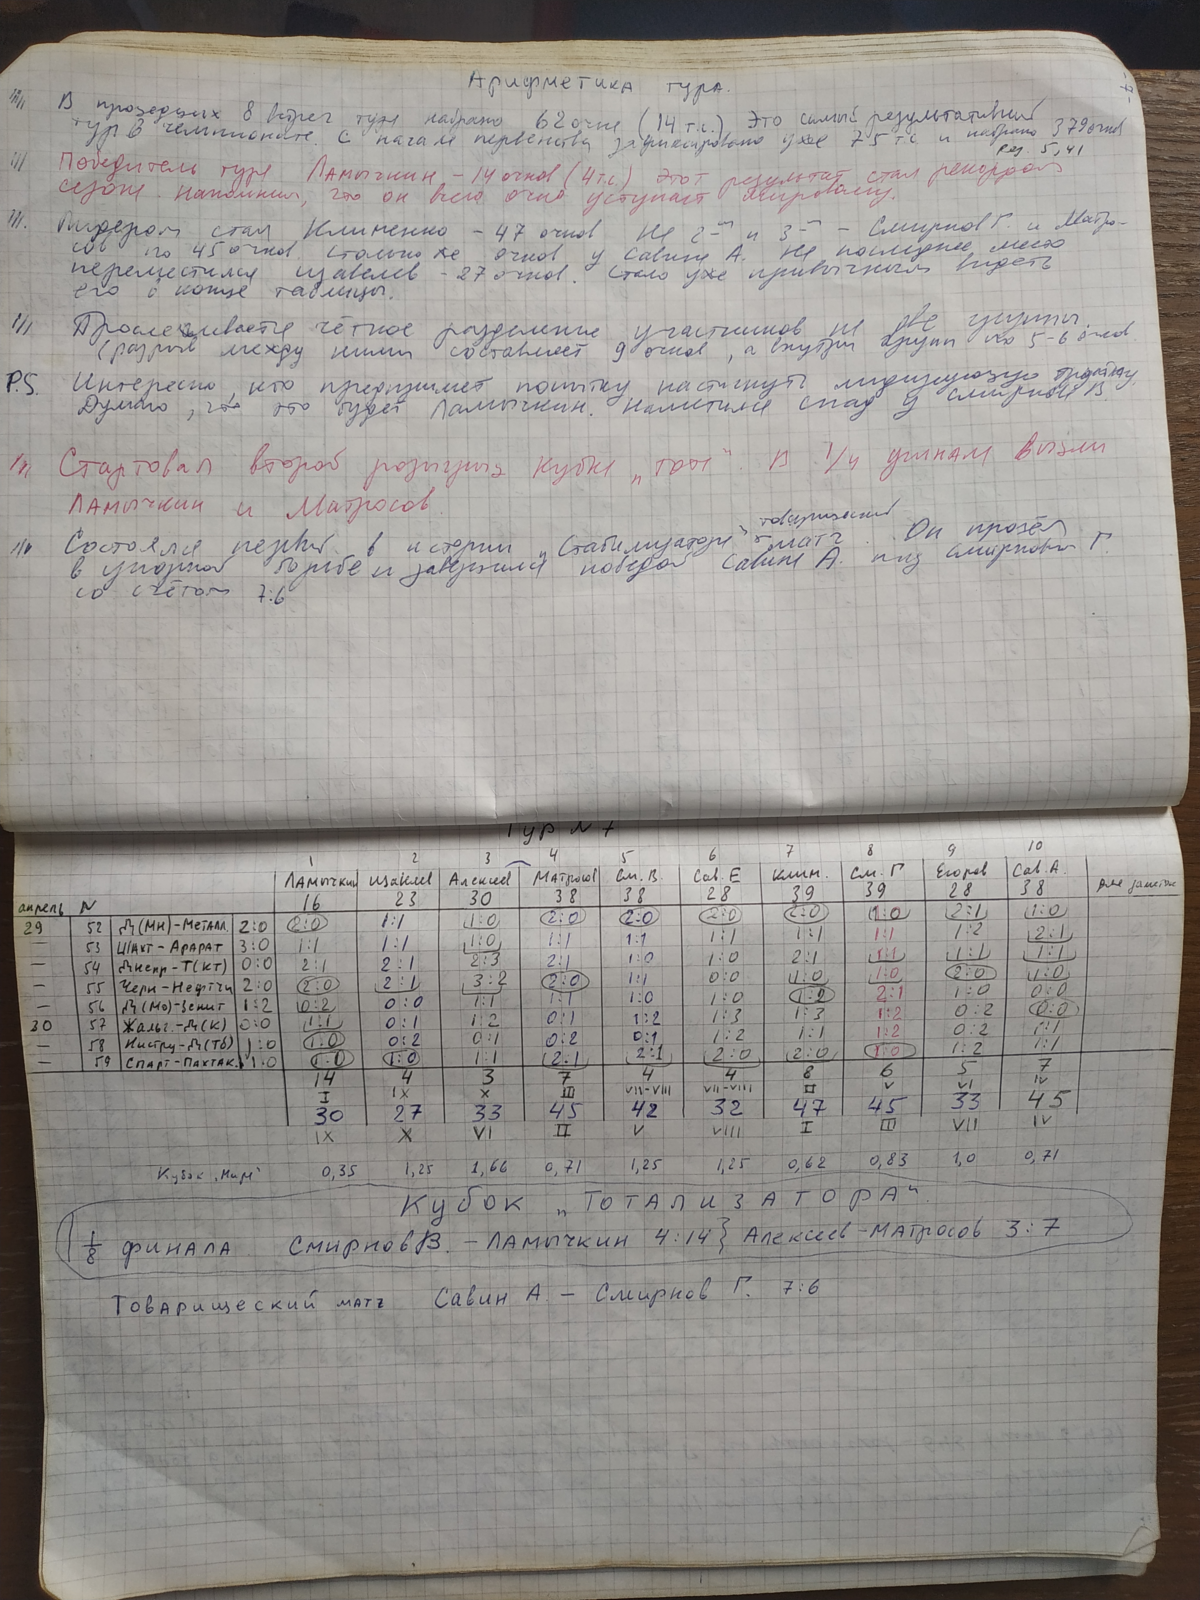 Арифметика тура.
В прошедших 8 встреч тура набрано 62 очка (14 т.с.) Это самый результативный
тур в чемпионате. С начала первенства зафиксировано уже 75 т.с. и набрано 379 очков
рез. 5,41
Победитель тура Ламычкин - 14 очков (4 т.с.) Этот результат стал рекордом
сезона. Напомним, что он всего очко уступает мировому.
Лидером стал Клименко - 47 очков На 2-м и 3-м - Смирнов Г. и Матро-
сов по 45 очков. Столько же очков у Савина А. На последнее место
переместился Щавелев - 27 очков. Стало уже привычным видеть
его в конце таблицы.
Прослеживается чёткое разделение участников на две группы
(разрыв между ними составляет 9 очков, а внутри групп по 5-6 очков
P.S. Интересно, кто предпримет попытку настигнуть лидирующую группу.
Думаю, что это будет Ламычкин. Наметился спад у Смирнова В.
Стартовал второй розыгрыш кубка „Тот". В 1/4 финала вышли
Ламычкин и Матросов.
товарищеский
Состоялся первый в истории матч. Он прошёл
в упорной борьбе и завершился победой Савина А. над Смирновым Г.
со счётом 7:6
Тур N 7
1 2 3 4 5 6 7 8 9 10
Ламычкин Щавелев Алексеев Матросов См. В. Сав. Е Клим. См. Г Егоров Сав. А. Для заметок
апрель N 16 23 30 38 38 28 39 39 28 38
29 52 Д(Мн)-Металл. 2:0 2:0 1:1 1:0 2:0 2:0 2:0 2:0 1:0 2:1 1:0
— 53 Шахт-Арарат 3:0 1:1 1:1 1:0 1:1 1:1 1:1 1:1 1:1 1:2 2:1
— 54 Днепр-Т(КТ) 0:0 2:1 2:1 2:3 2:1 1:0 1:0 2:1 1:1 1:1 1:1
— 55 Черн-Нефтчи 2:0 2:0 2:1 3:2 2:0 1:1 0:0 1:0 1:0 2:0 1:0
— 56 Д(Мо)-Зенит 1:2 0:2 0:0 1:1 1:1 1:0 1:0 1:2 2:1 1:0 0:0
30 57 Жальг.-Д(К) 0:0 1:1 0:1 1:2 0:1 1:2 1:3 1:3 1:2 0:2 0:0
— 58 Нистру-Д(Тб) 1:0 1:0 0:2 0:1 0:2 0:1 1:2 1:1 1:2 0:2 1:1
— 59 Спарт-Пахтак. 1:0 1:0 1:0 1:1 2:1 2:1 2:0 2:0 1:0 1:2 1:1
14 4 3 7 4 4 8 6 5 7
I IX X III VII-VIII VII-VIII II V VI IV
30 27 33 45 42 32 47 45 33 45
IX X VI II V VIII I III VII IV
Кубок 0,35 1,25 1,66 0,71 1,25 1,25 0,62 0,83 1,0 0,71
Кубок „Тотализатора"
1/8 финала Смирнов В. - Ламычкин 4:14 } Алексеев - Матросов 3:7
Товарищеский матч Савин А. - Смирнов Г. 7:6